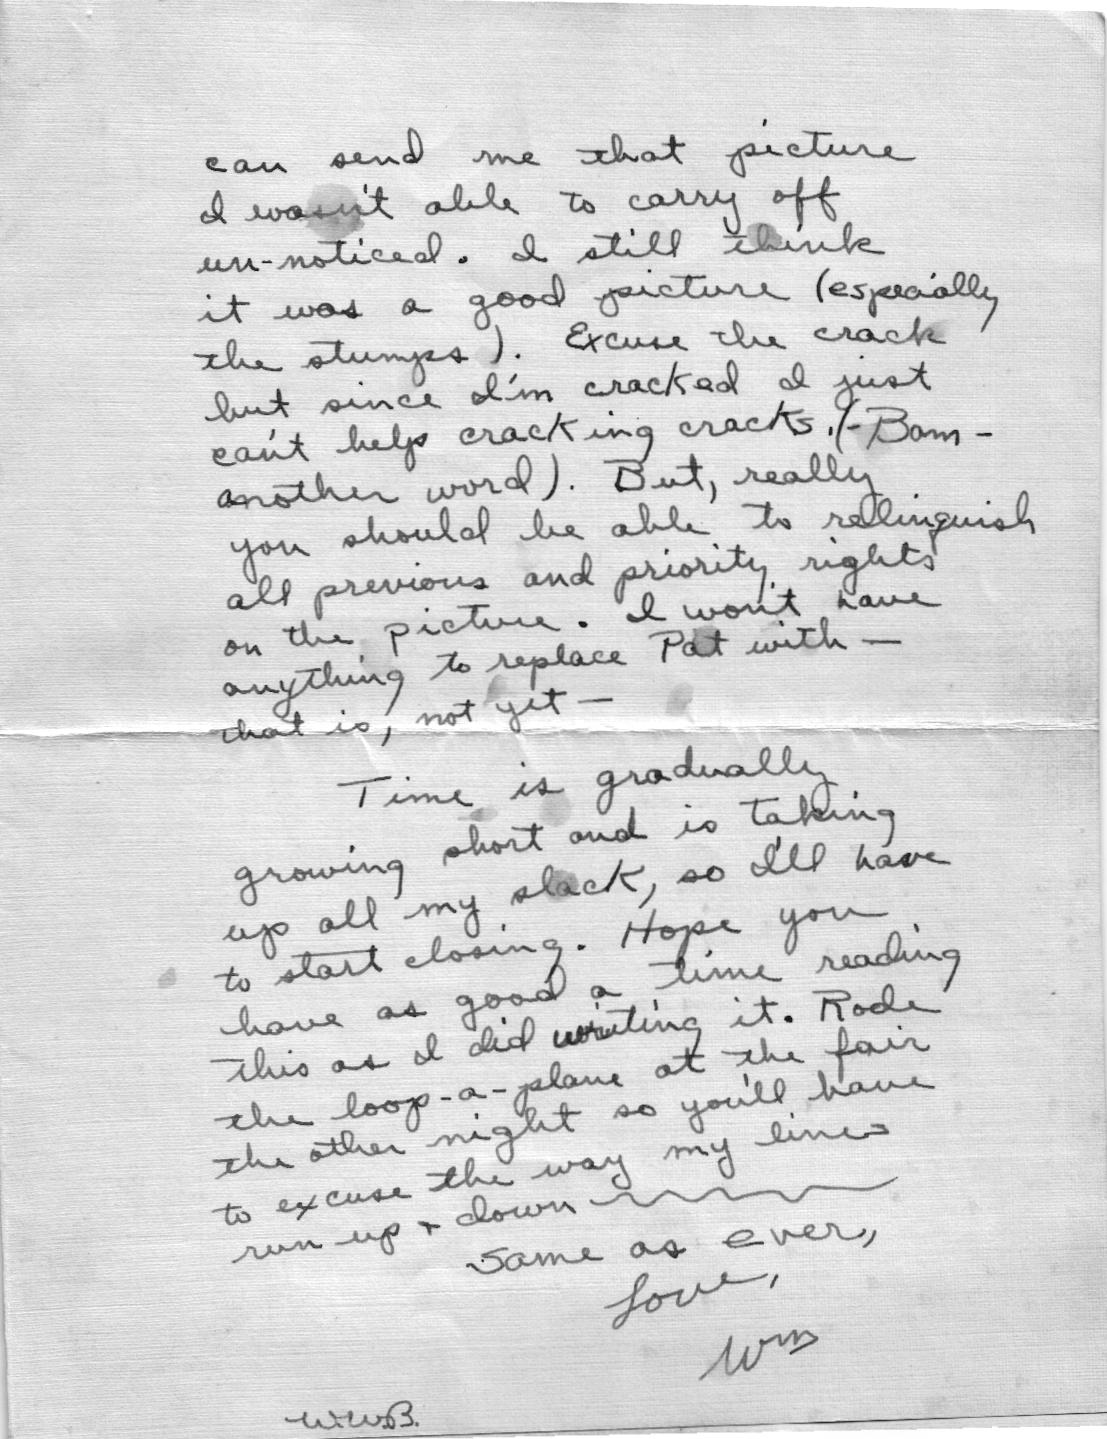 can send me that picture
I wasn't able to carry off
un-noticed. I still think
it was a good picture (especially
the stumps). Excuse the crack
but since I'm cracked I just
can't help cracking cracks. (-Bam-
another word). But, really
you should be able to relinquish
all previous and priority rights
on the picture. I won't have
anything to replace Pat with —
that is, not yet —
Time is gradually
growing short and is taking
up all my slack, so I'll have
to start closing. Hope you
have as good a time reading
this as I did writing it. Rode
the loop-a-plane at the fair
the other night so you'll have
to excuse the way my lines
run up + down
Same as ever,
Love,
Wm
W.W.B.